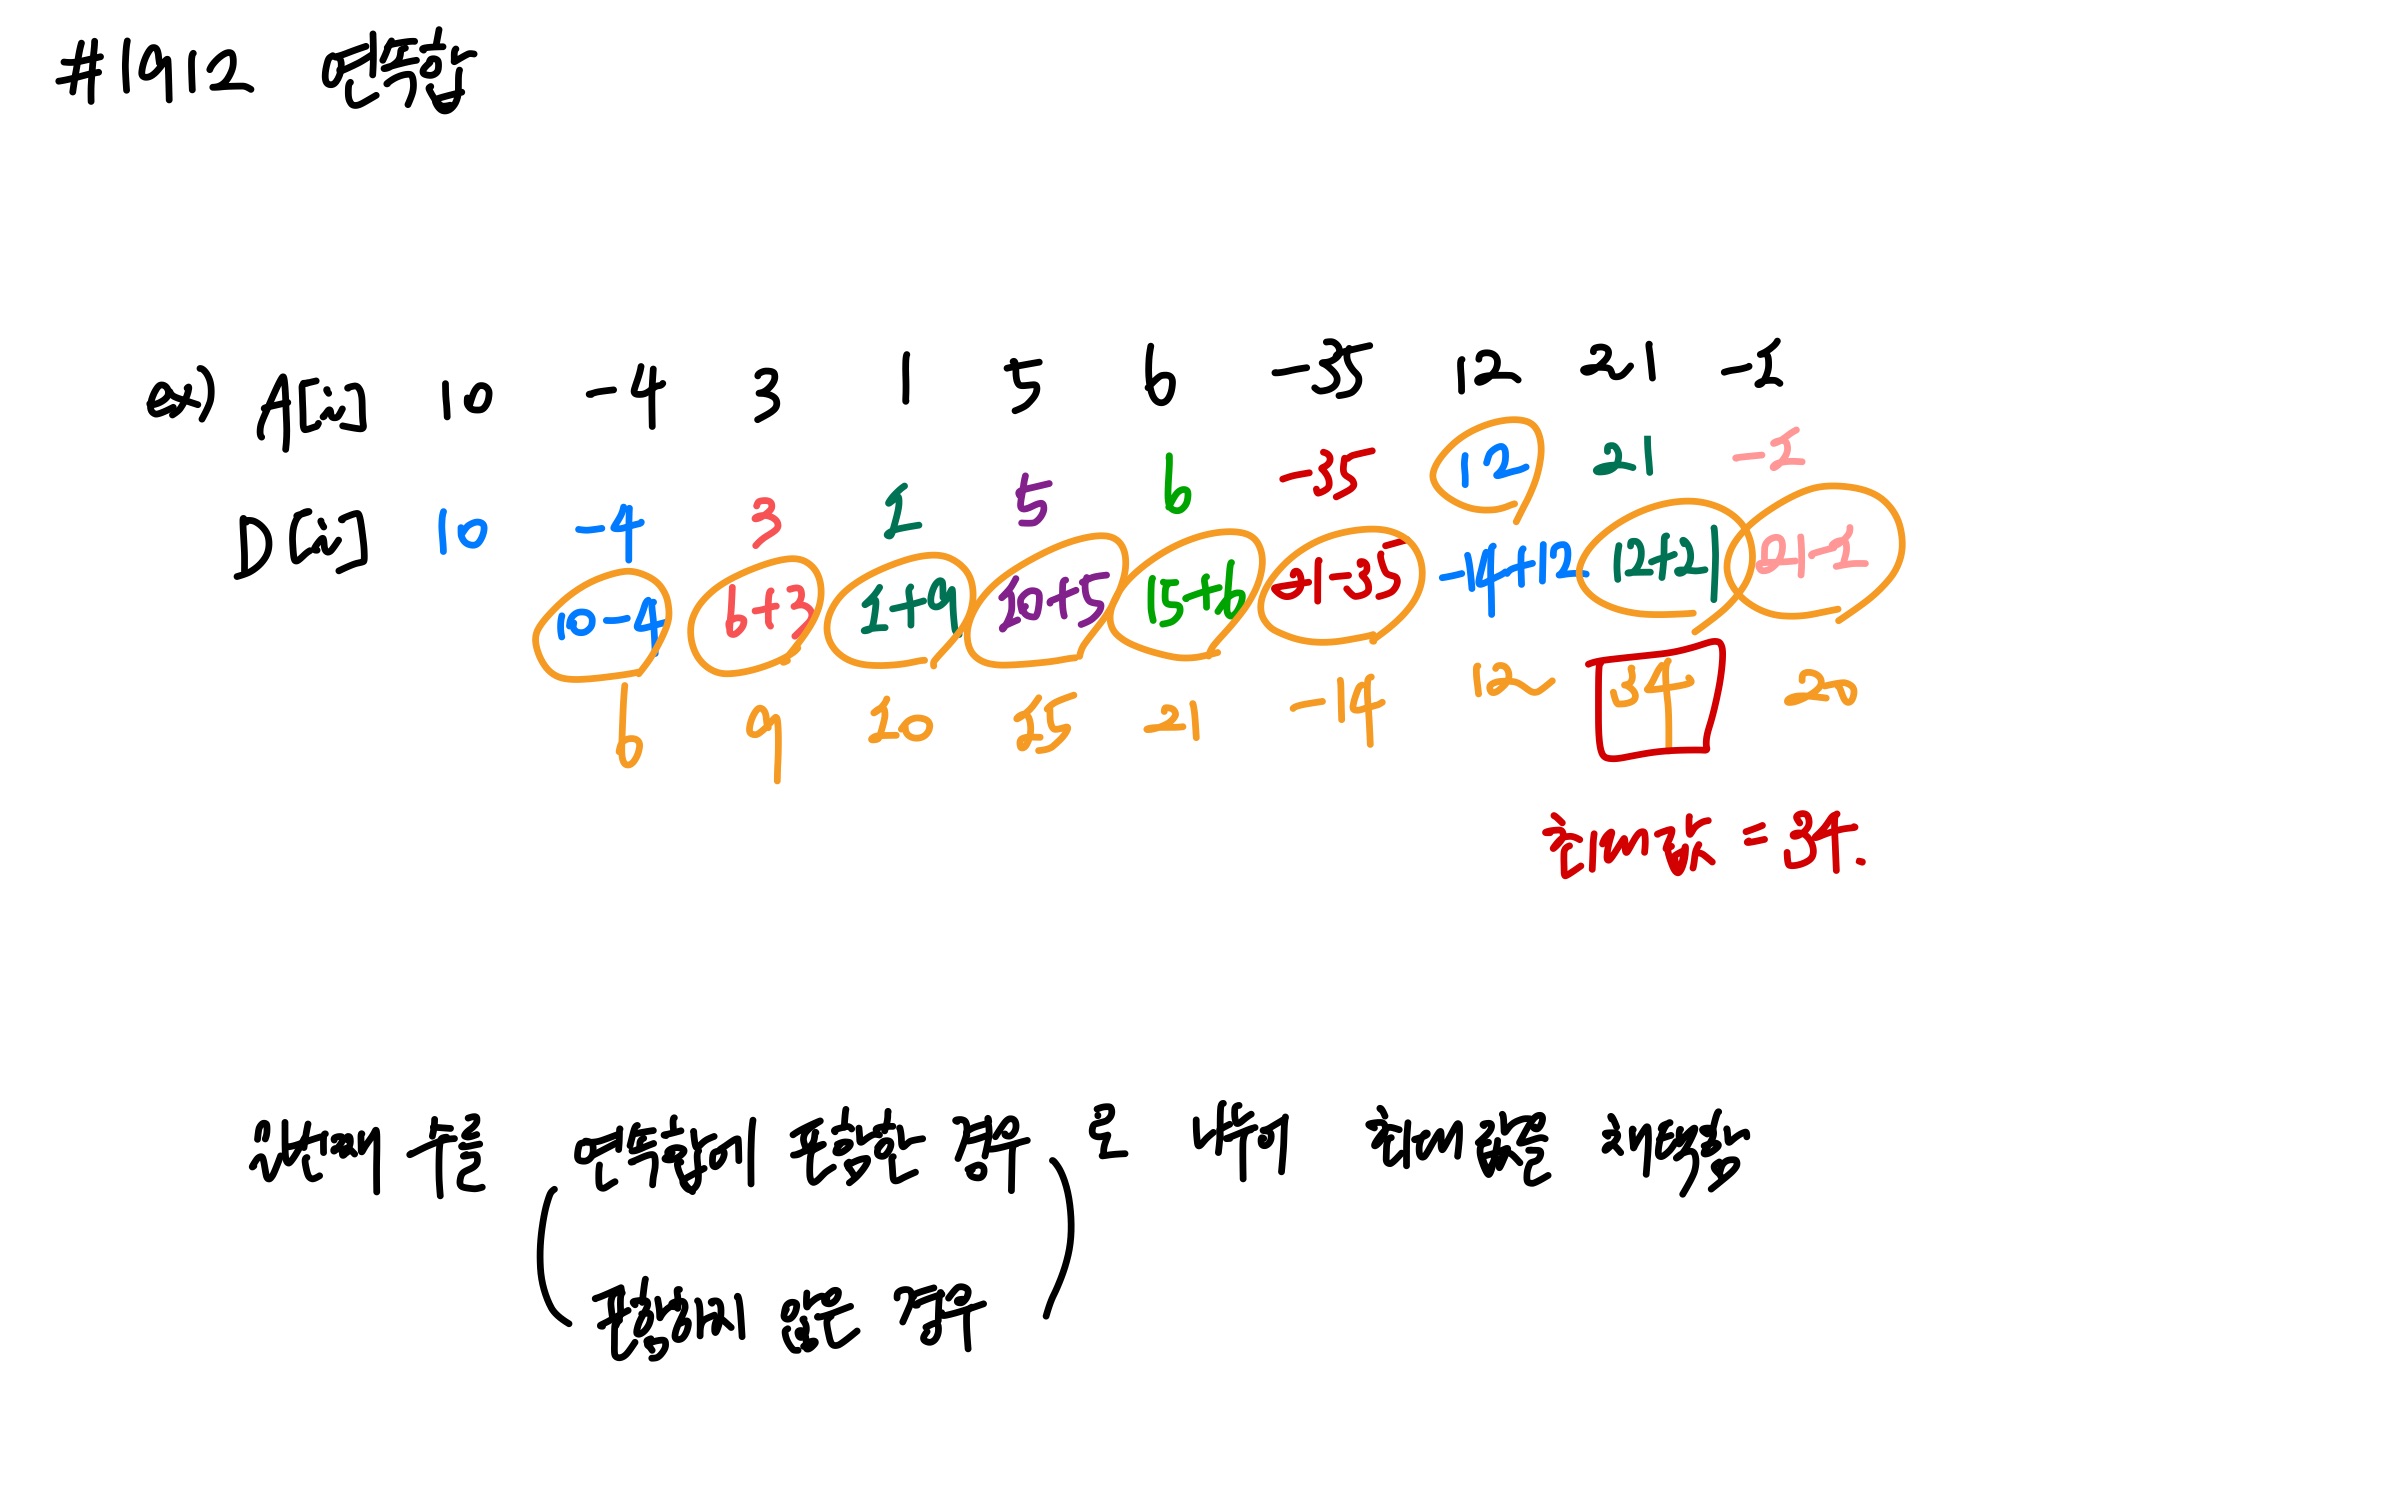 #1912 연속합
ex) A[i] 10 -4 3 1 5 6 -35 12 21 -1
12 21 -1
D[i] 10 -4 3 1 5 6 -35
10-4 6+3 1+9 10+5 15+6 21-35 -14+12 12+21 21-1
6 9 10 15 21 -14 12 34 20
최대값 = 34.
i번째 수를 연속합에 포함하는 경우로 나누어 최대값을 구해나감
포함하지 않는 경우